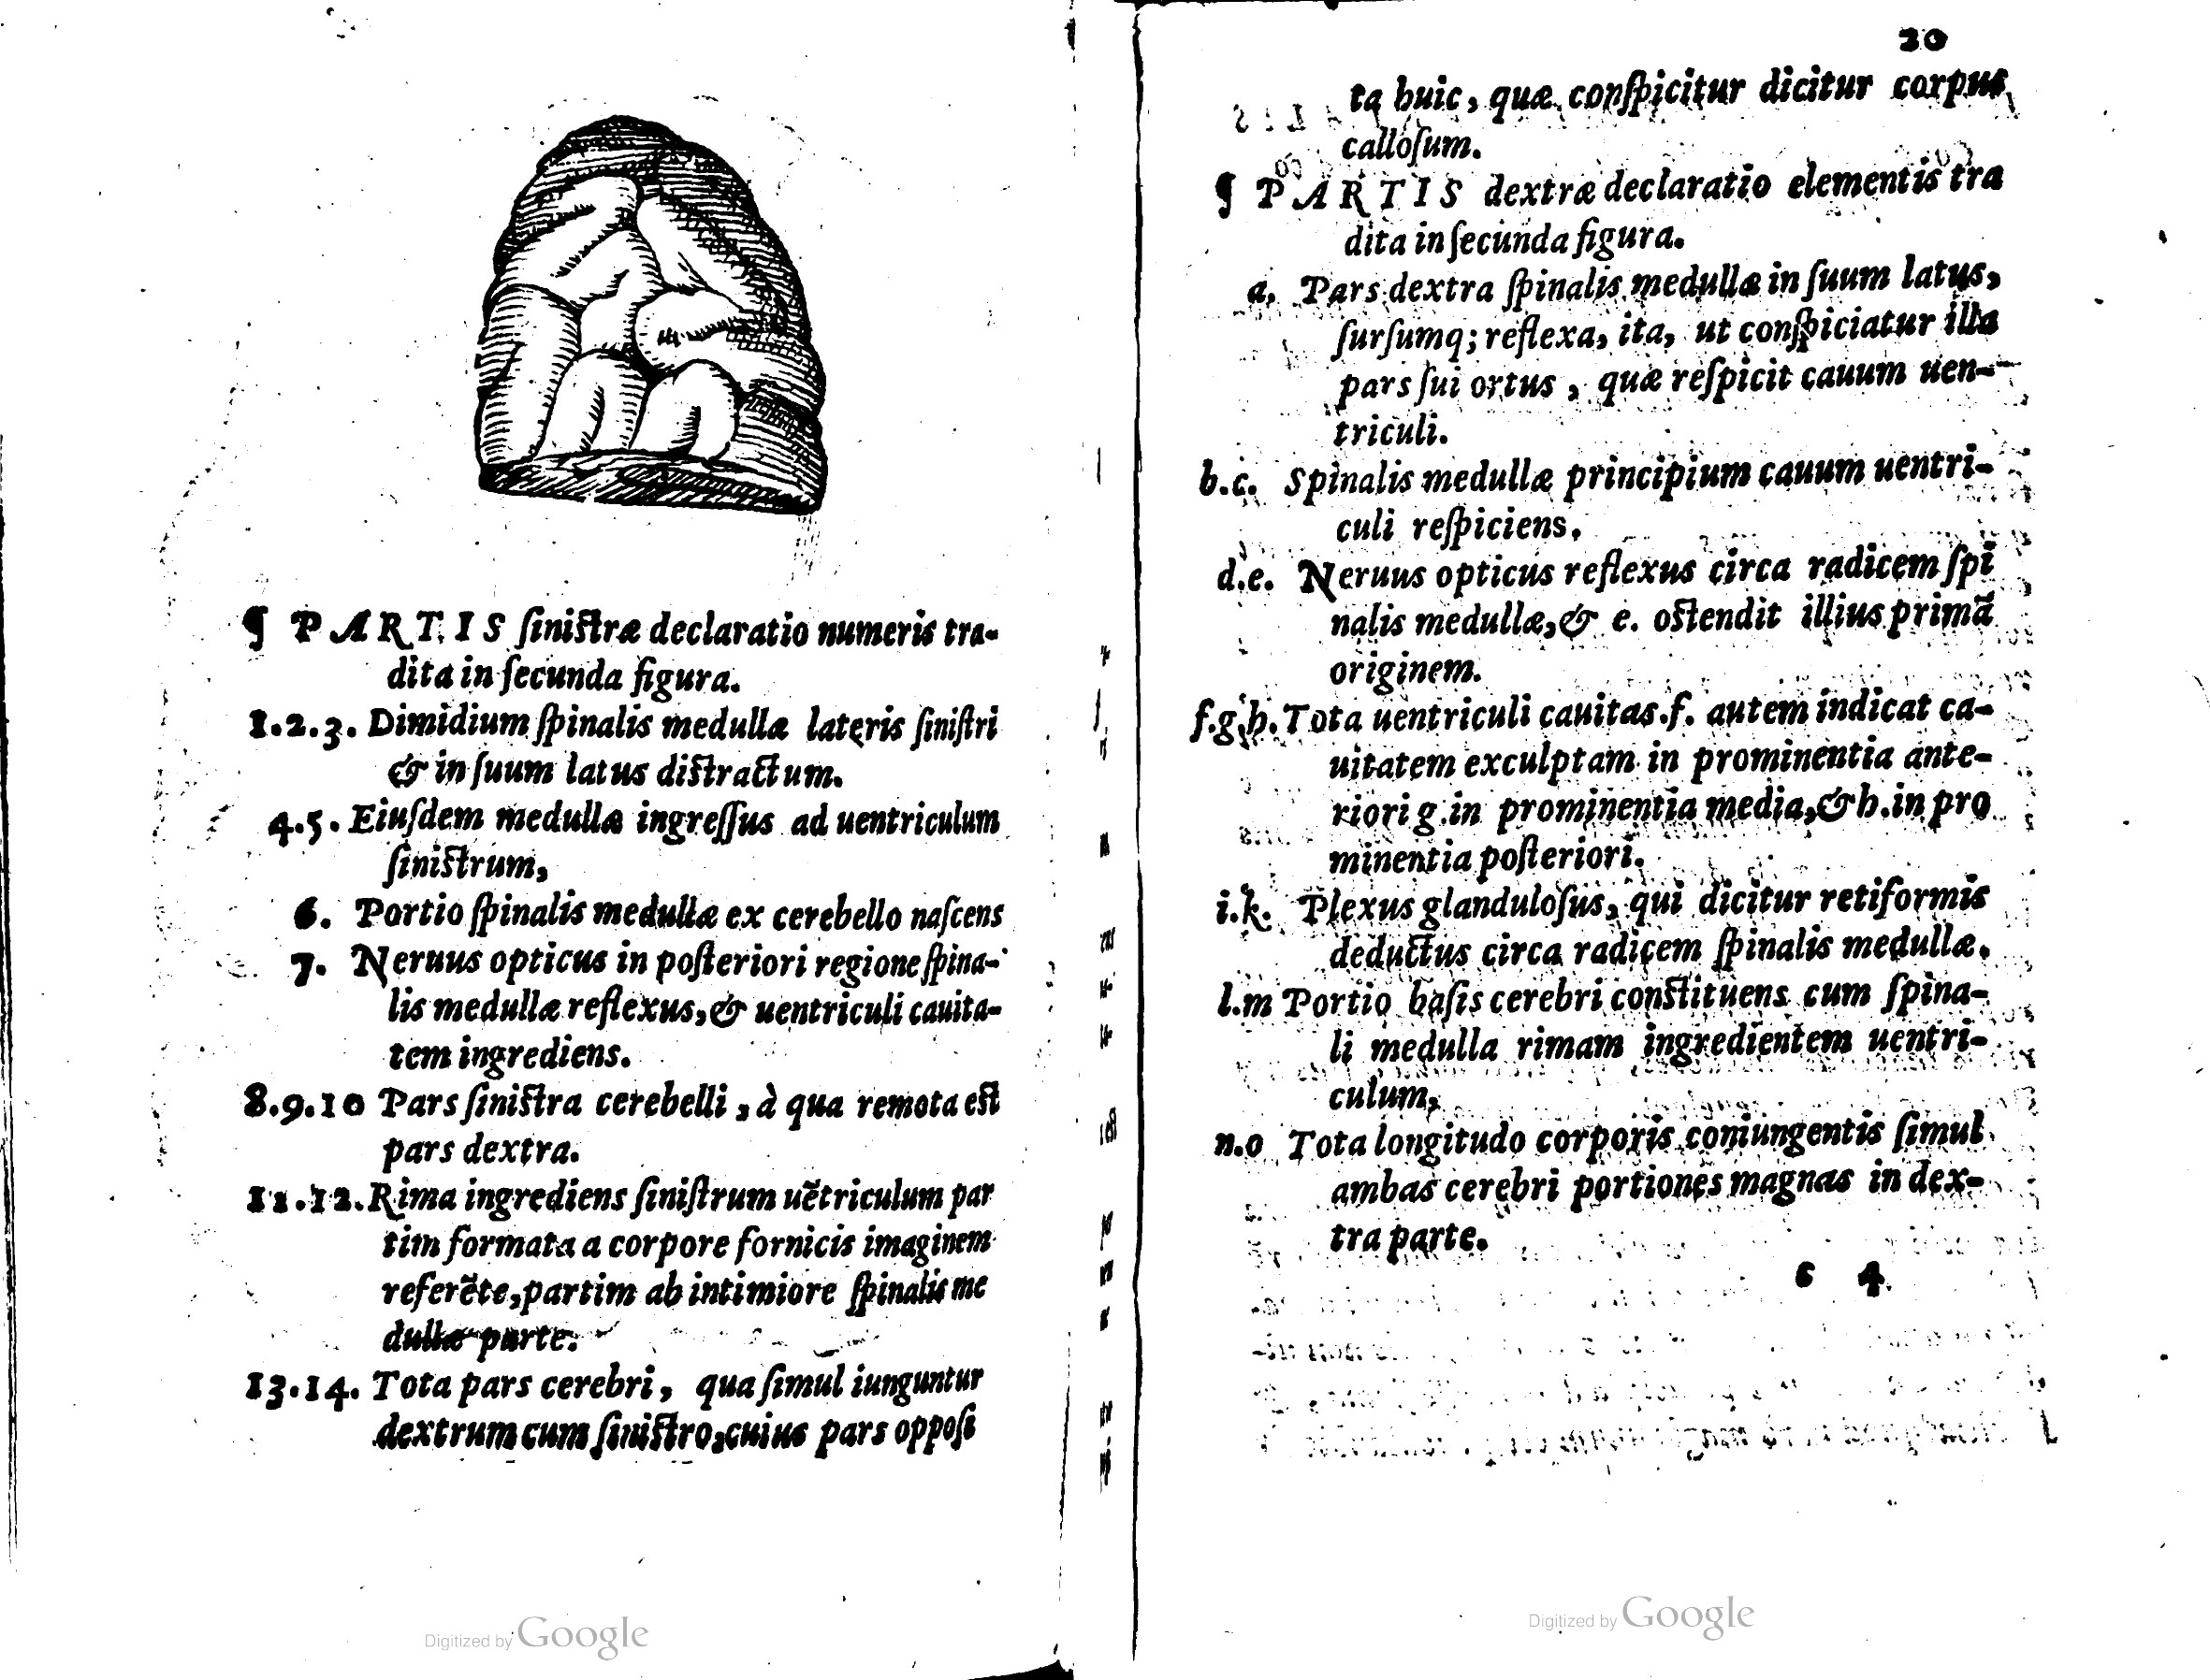 ¶ PARTIS ſiniſtræ declaratio numeris tra-
dita in ſecunda figura.
1.2.3. Dimidium ſpinalis medullæ lateris ſiniſtri
& in ſuum latus diſtractum.
4.5. Eiuſdem medullæ ingreſſus ad uentriculum
ſiniſtrum,
6. Portio ſpinalis medullæ ex cerebello naſcens
7. Neruus opticus in poſteriori regione ſpina-
lis medullæ reflexus, & uentriculi cauita-
tem ingrediens.
8.9.10 Pars ſiniſtra cerebelli, à qua remota eſt
pars dextra.
11.12. Rima ingrediens ſiniſtrum uẽtriculum par
tim formata a corpore fornicis imaginem
referẽte, partim ab intimiore ſpinalis me
dullæ parte.
13.14. Tota pars cerebri, qua ſimul iunguntur
dextrum cum ſiniſtro, cuius pars oppoſi
Digitized by Google
20
ta huic, quæ conſpicitur dicitur corpus
calloſum.
¶ PARTIS dextræ declaratio elementis tra
dita in ſecunda figura.
a. Pars dextra ſpinalis medullæ in ſuum latus,
ſurſumq; reflexa, ita, ut conſpiciatur illa
pars ſui ortus, quæ reſpicit cauum uen-
triculi.
b.c. Spinalis medullæ principium cauum uentri-
culi reſpiciens.
d.e. Neruus opticus reflexus circa radicem ſpi
nalis medullæ, & e. oſtendit illius primã
originem.
f.g.h. Tota uentriculi cauitas. f. autem indicat ca-
uitatem exculptam in prominentia ante-
riori g.in prominentia media, & h. in pro
minentia poſteriori.
i.k. Plexus glanduloſus, qui dicitur retiformis
deductus circa radicem ſpinalis medullæ.
l.m Portio baſis cerebri conſtituens cum ſpina-
li medulla rimam ingredientem uentri-
culum,
n.o Tota longitudo corporis coniungentis ſimul
ambas cerebri portiones magnas in dex-
tra parte.
c 4
Digitized by Google